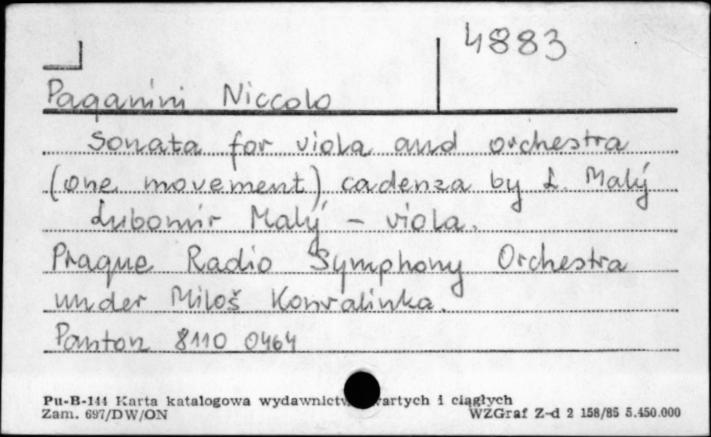 4883
Paganini Niccolo
Sonata for viola and orchestra
(one movement) cadenza by L. Malý
Lubomír Malý - viola.
Prague Radio Symphony Orchestra
under Miloš Konvalinka.
Panton 8110 0464
Pu-B-144 Karta katalogowa wydawnictw i ciągłych
Zam. 697/DW/ON WZGraf Z-d 2 158/85 5.450.000